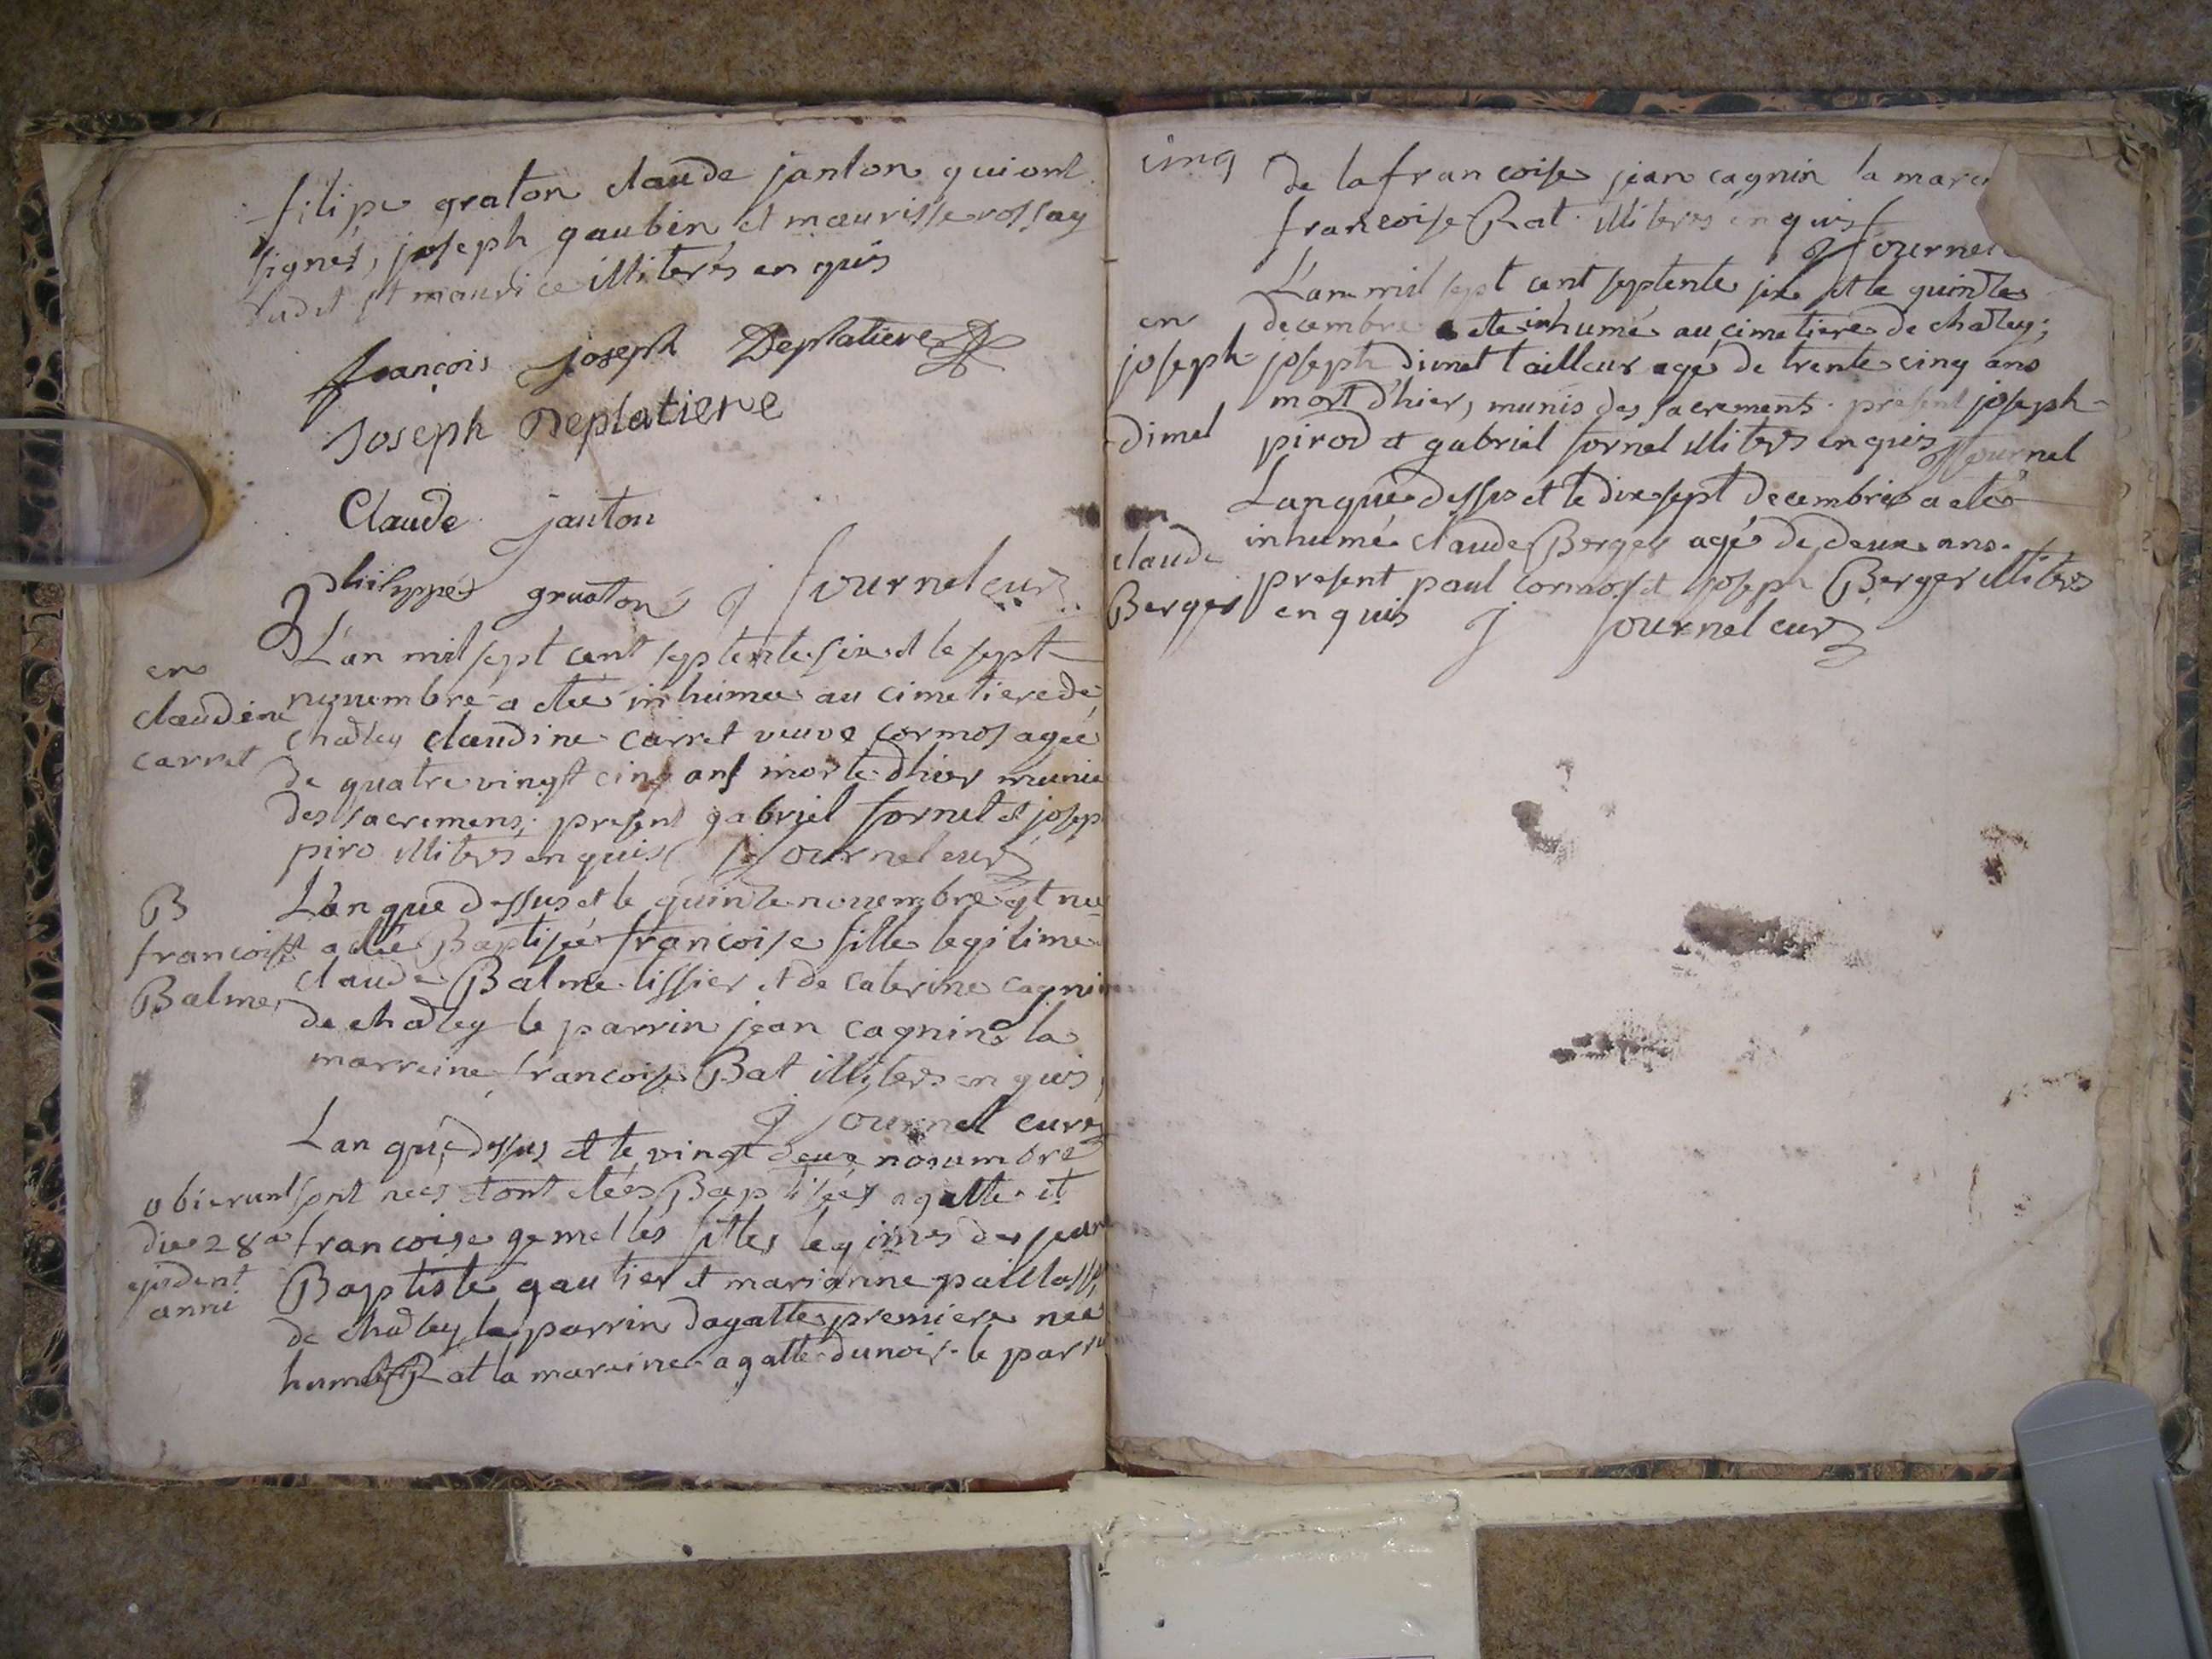 filipe graton claude janton qui ont
signés, joseph gaubin et maurisse rossay
dudit st maurice illiterés enquis
françois joseph Deplatiere
Joseph Deplatiere
Claude janton
philippe graton J fournel curé
L'an mil sept cent septente six et le sept
en
novembre a etée inhumée au cimetiere de
claudine
chadley claudine carret veuve cormos agée
carret
de quatre vingt cinq ans morte d'hier munie
des sacremens, present gabriel fornel et josep
piro illiterés enquis J fournel curé
B
L'an que dessus et le quinze novembre est née
francoise
a etée Baptisée francoise fille legitime
Balme
claude Balme tissier et de caterine cagnin
de chadley le parrin jean cagnin la
marreine francoise Bat illiterés enquis
J fournel curé
L'an que dessus et le vingt deux novembre
obierunt
sont nees et ont etées Baptisées agatte et
die 28a
francoise gemelles filles legimes de jean
ejusdem
Baptiste gautier et marianne paillasse
anni
de chadley le parrin d'agatte premiere née
humbert Rat la mareine agatte dunoir le parrin
cinq
de la francoise jean cagnin la marei
francoise Rat illiterés enquis
J fournel
L'an mil sept cent septente six et le quinze
en
decembre a ete inhumé au cimetiere de chadley,
joseph
joseph dimet tailleur agé de trente cinq ans
mort d'hier, munis des sacrements present joseph
dimet
pirod et gabriel fornel illiterés enquis J fournel
L'an que dessus et le dix sept decembre a eté
en
claude
inhumé claude Berger agé de deux ans
present paul cormos et joseph Berger illiterés
Berger
enquis J fournel curé